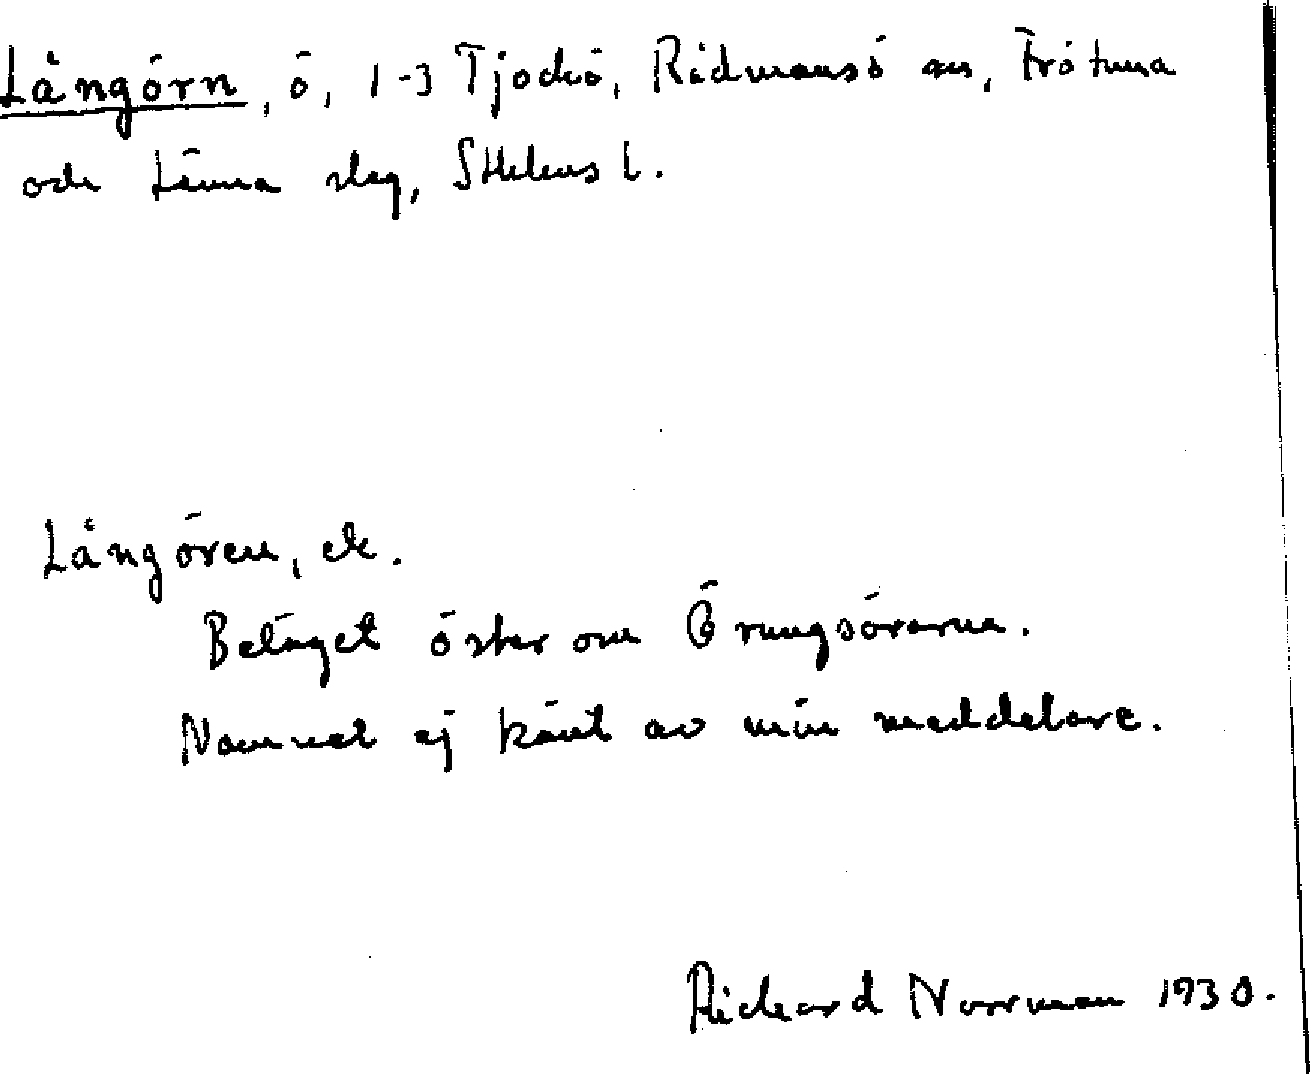 Långörn, ö, 1-3 Tjockö, Rådmansö sn, Frötuna
och Länna slag, Sthlms l.
Långören, ek.
Beläget öster om Örungsörarna.
Namnet ej känt av min meddelare.
Richard Norrman 1930.